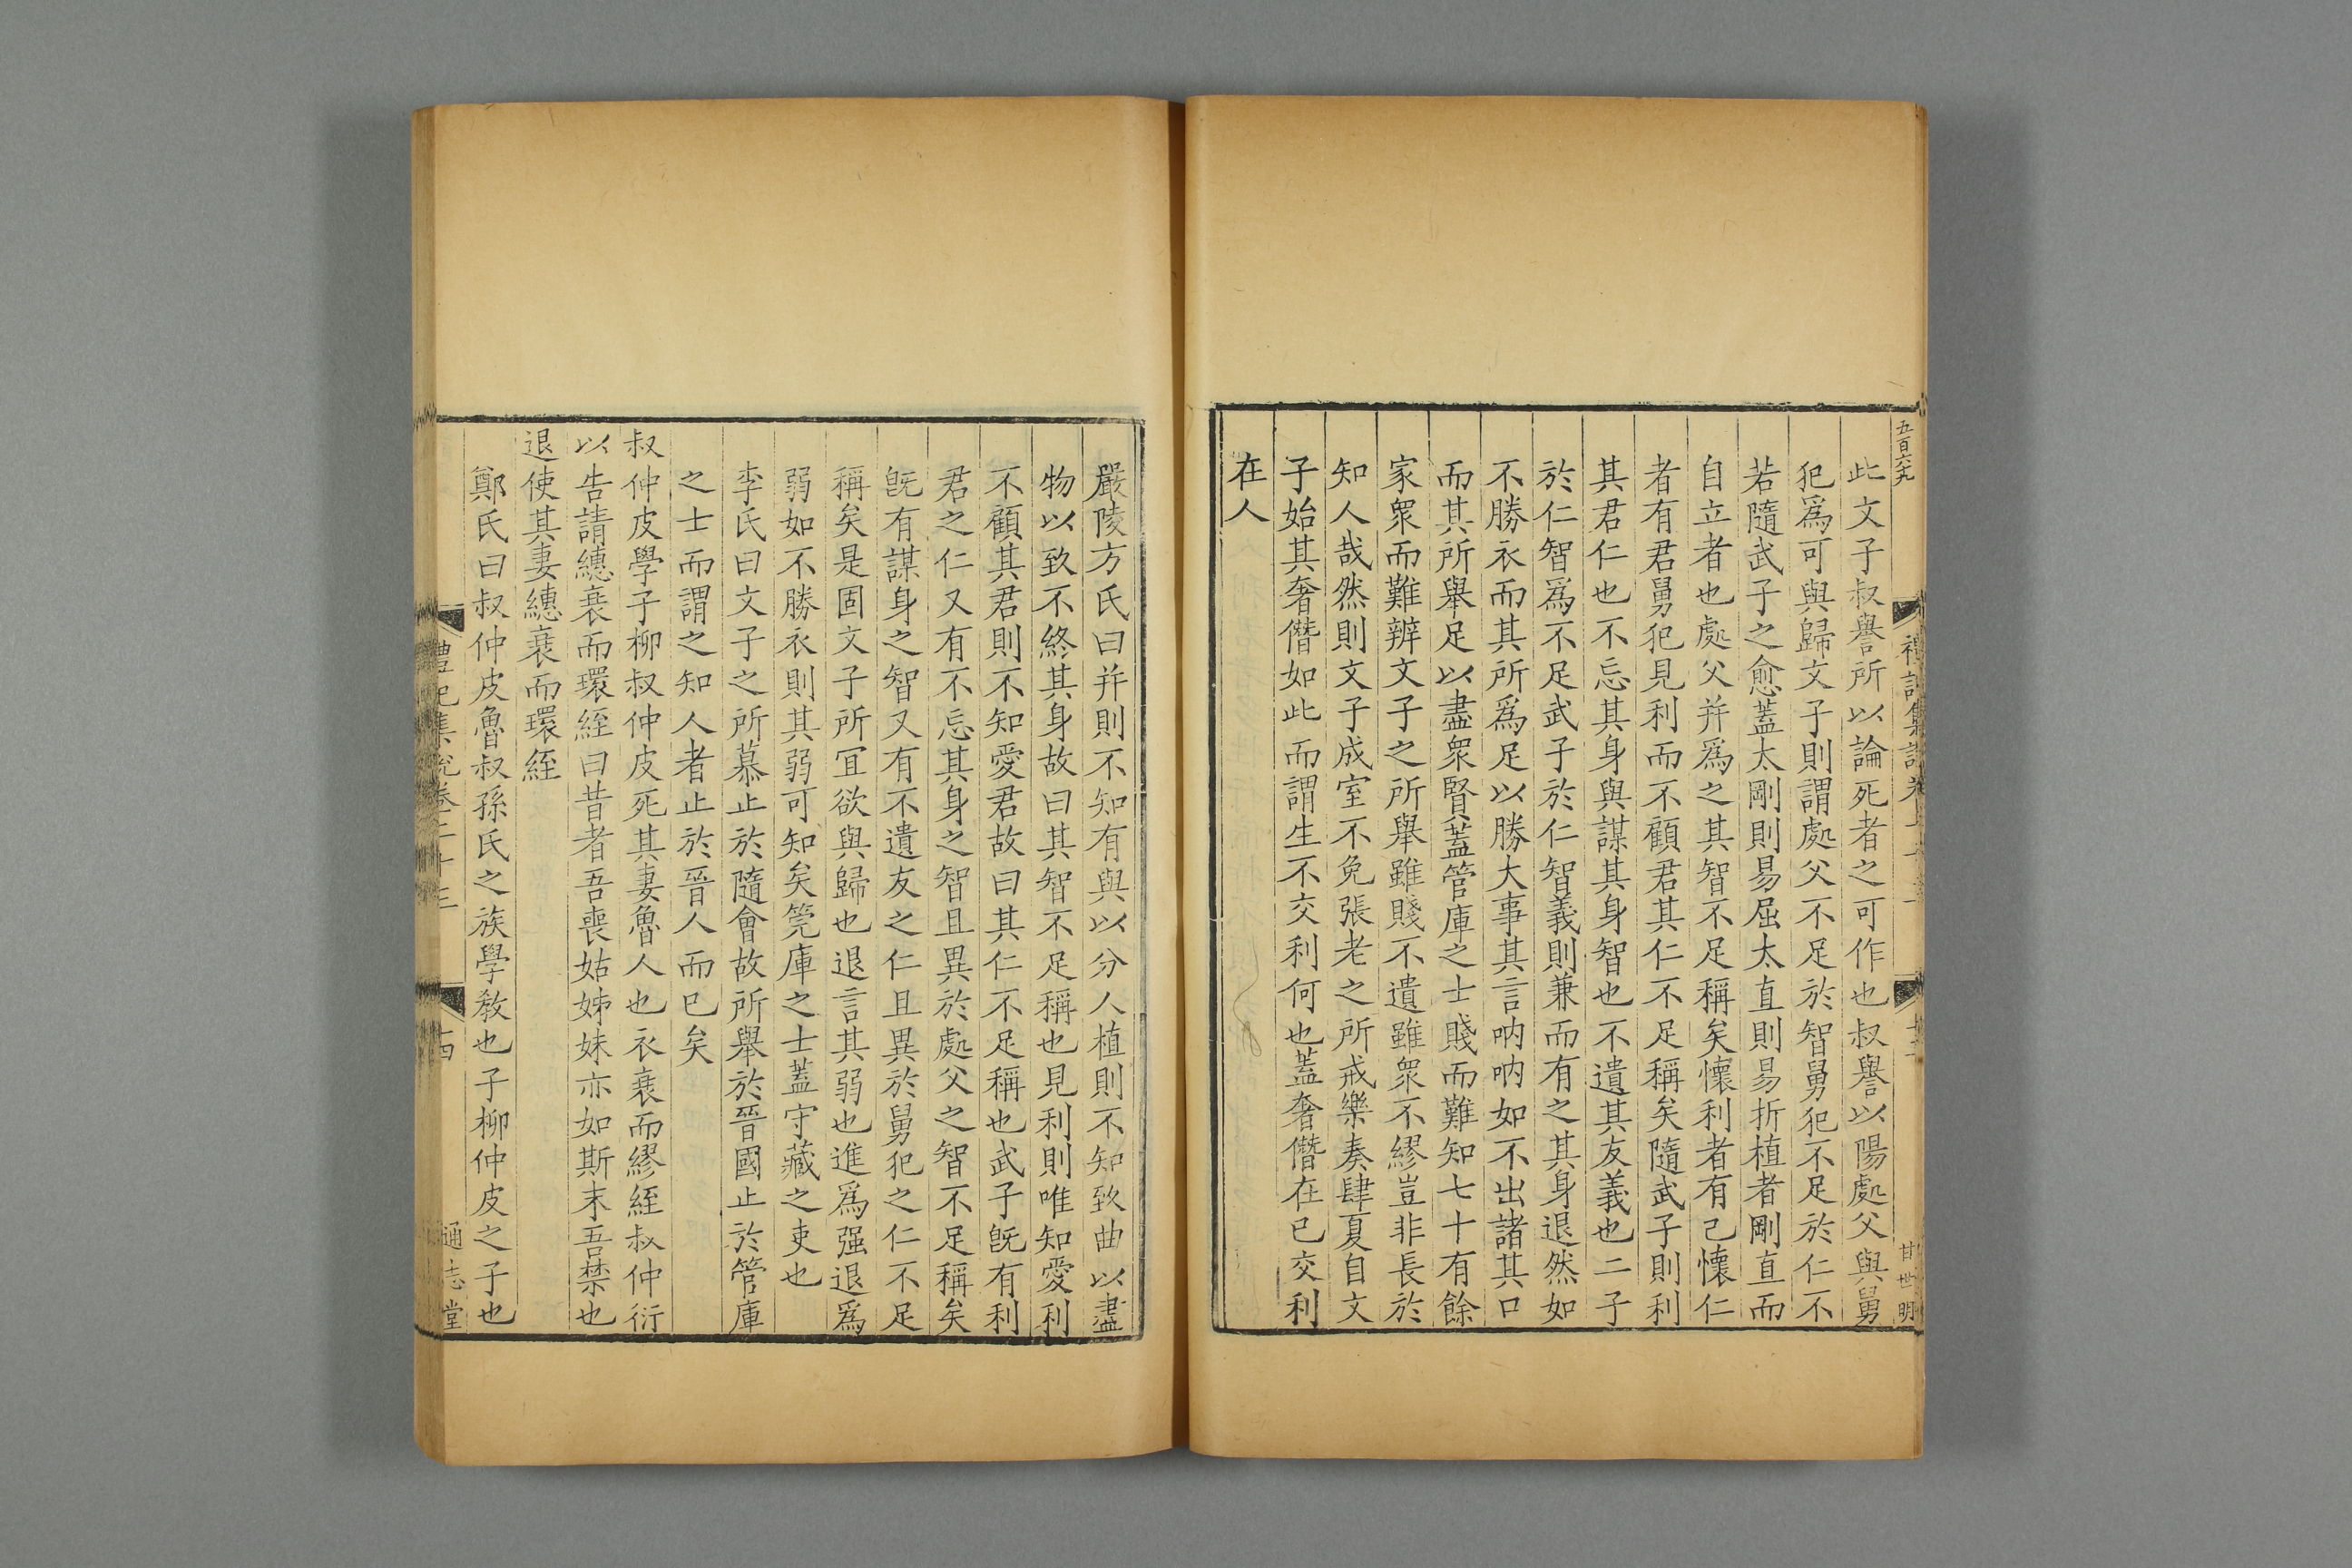 五百六十九
此文子叔譽所以論死者之可作也叔譽以陽處父與舅
犯爲可與歸文子則謂處父不足於智舅犯不足於仁不
若隨武子之愈蓋太剛則易屈太直則易折植者剛直而
自立者也處父并爲之其智不足稱矣懷利者有己懷仁
者有君舅犯見利而不顧君其仁不足稱矣隨武子則利
其君仁也不忘其身與謀其身智也不遺其友義也二子
於仁智爲不足武子於仁智義則兼而有之其身退然如
不勝衣而其所爲足以勝大事其言吶吶如不出諸其口
而其所舉足以盡衆賢蓋管庫之士賤而難知七十有餘
家衆而難辨文子之所舉雖賤不遺雖衆不繆豈非長於
知人哉然則文子成室不免張老之所戒樂奏肆夏自文
子始其奢僭如此而謂生不交利何也蓋奢僭在已交利
在人
甘世明
嚴陵方氏曰并則不知有與以分人植則不知致曲以盡
物以致不終其身故曰其智不足稱也見利則唯知愛利
不顧其君則不知愛君故曰其仁不足稱也武子旣有利
君之仁又有不忘其身之智且異於處父之智不足稱矣
旣有謀身之智又有不遺友之仁且異於舅犯之仁不足
稱矣是固文子所冝欲與歸也退言其弱也進爲强退爲
弱如不勝衣則其弱可知矣筦庫之士蓋守藏之吏也
李氏曰文子之所慕止於隨會故所舉於晉國止於管庫
之士而謂之知人者止於晉人而巳矣
叔仲皮學子柳叔仲皮死其妻魯人也衣衰而繆絰叔仲衍
以告請繐衰而環絰曰昔者吾喪姑姊妹亦如斯末吾禁也
退使其妻繐衰而環絰
鄭氏曰叔仲皮魯叔孫氏之族學敎也子柳仲皮之子也
禮記集說卷二十三
十四
通志堂